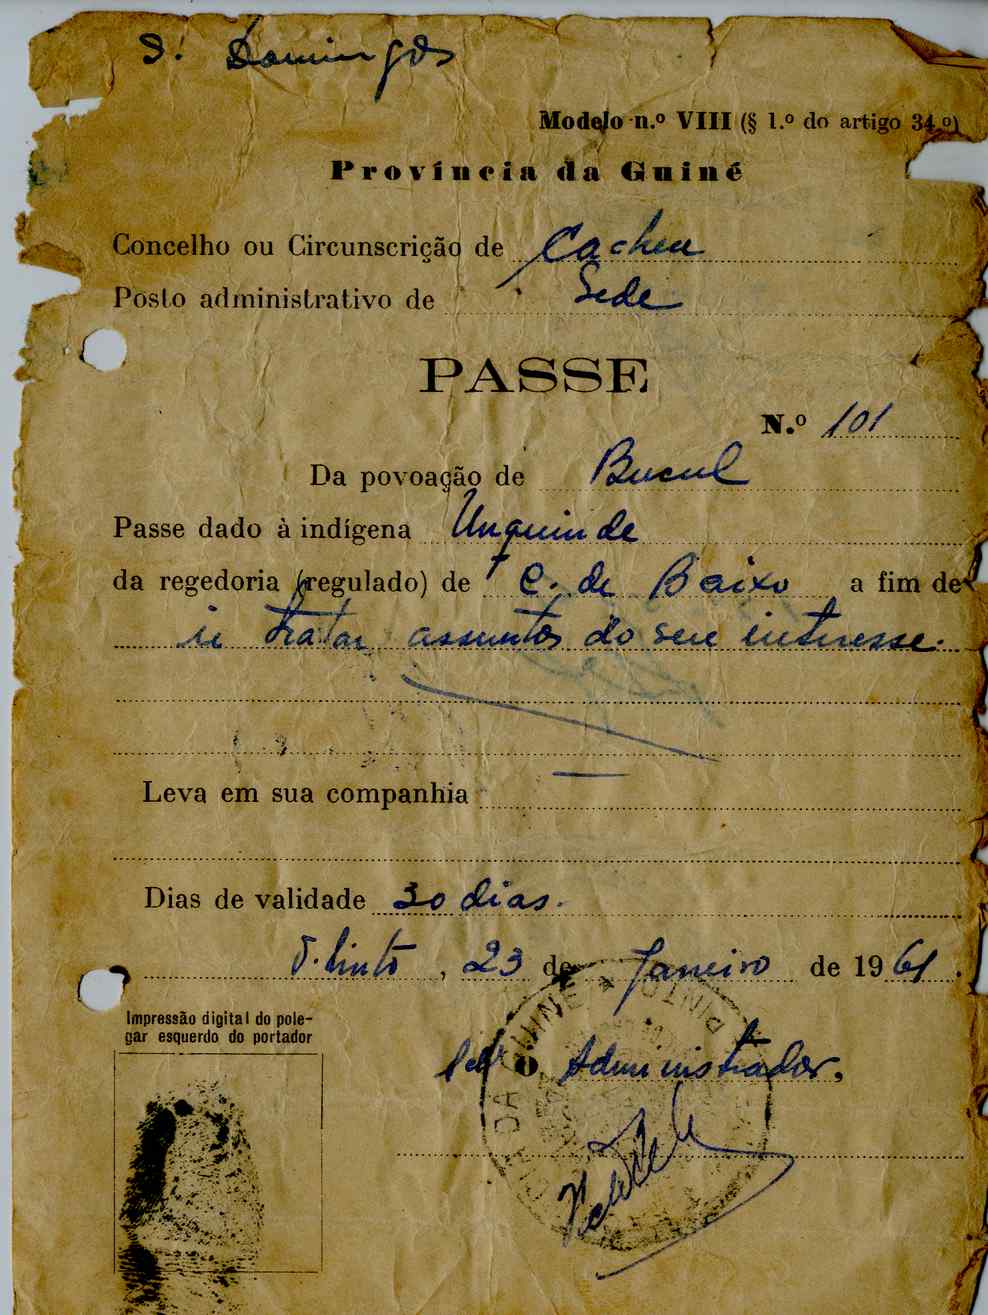 S. Domingos
Modelo n.º VIII (§ 1.º do artigo 34.º)
Província da Guiné
Concelho ou Circunscrição de Cacheu
Posto administrativo de Sede
PASSE
N.º 101
Da povoação de Bucul
Passe dado à indígena Unquinde
da regedoria (regulado) de C. de Baixo a fim de
ir tratar assuntos do seu interesse.
Leva em sua companhia
Dias de validade 30 dias.
T. Pinto, 23 de Janeiro de 1961.
Impressão digital do pole-
gar esquerdo do portador
O Administrador,
DA GUINÉ
PINTO